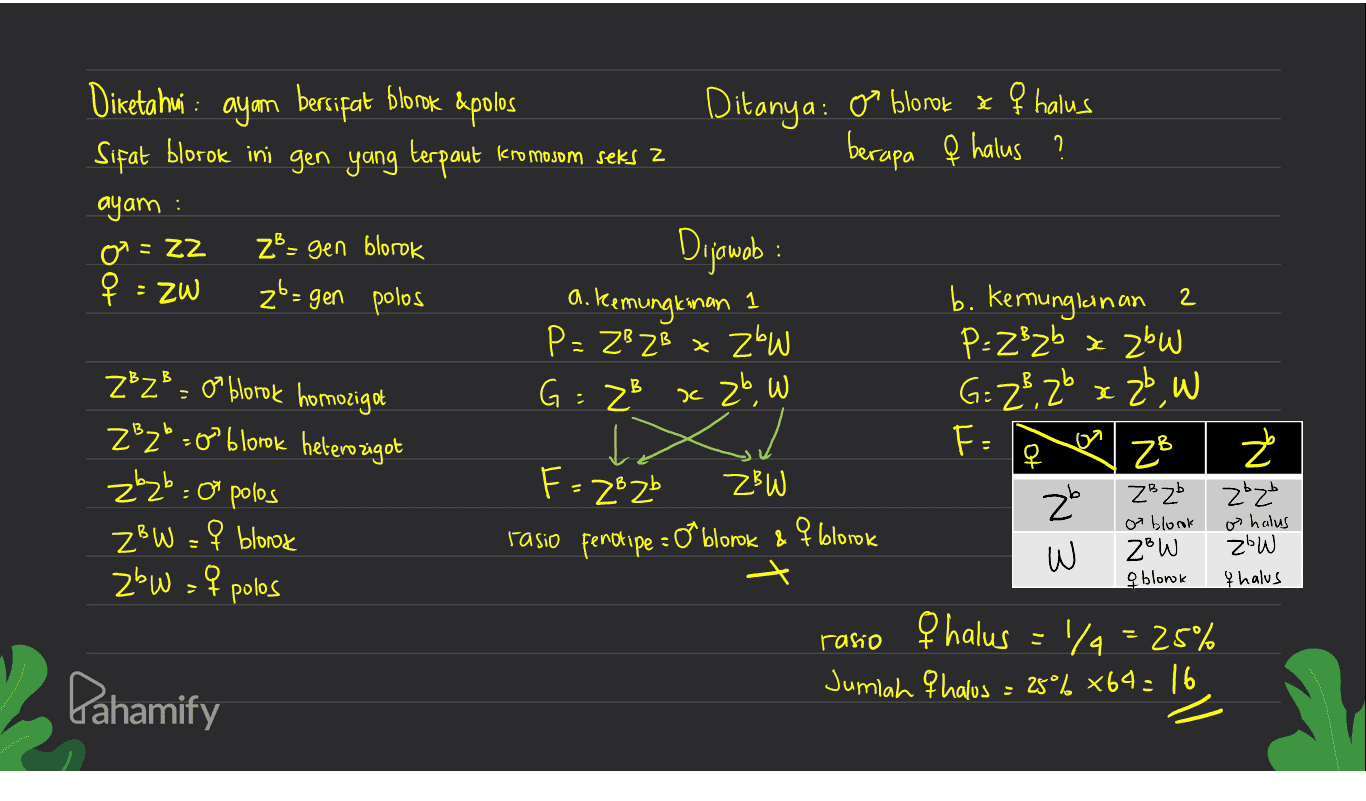 Diketahui : ayam bersifat blorok & polos
Sifat blorok ini gen yang terpaut kromosom seks z
ayam :
♂ = ZZ Zᴮ = gen blorok
♀ = ZW Zᵇ = gen polos
ZᴮZᴮ = ♂ blorok homozigot
ZᴮZᵇ = ♂ blorok heterozigot
ZᵇZᵇ = ♂ polos
ZᴮW = ♀ blorok
ZᵇW = ♀ polos
Ditanya : ♂ blorok x ♀ halus
berapa ♀ halus ?
Dijawab :
a. kemungkinan 1
P = ZᴮZᴮ x ZᵇW
G : Zᴮ x Zᵇ, W
F = ZᴮZᵇ ZᴮW
rasio fenotipe = ♂ blorok & ♀ blorok
b. kemungkinan 2
P = ZᴮZᵇ x ZᵇW
G = Zᴮ, Zᵇ x Zᵇ, W
F =
♀ ♂ Zᴮ Zᵇ
Zᵇ ZᴮZᵇ ZᵇZᵇ
♂ blorok ♂ halus
W ZᴮW ZᵇW
♀ blorok ♀ halus
rasio ♀ halus = 1/4 = 25%
Jumlah ♀ halus = 25% x 64 = 16
Pahamify